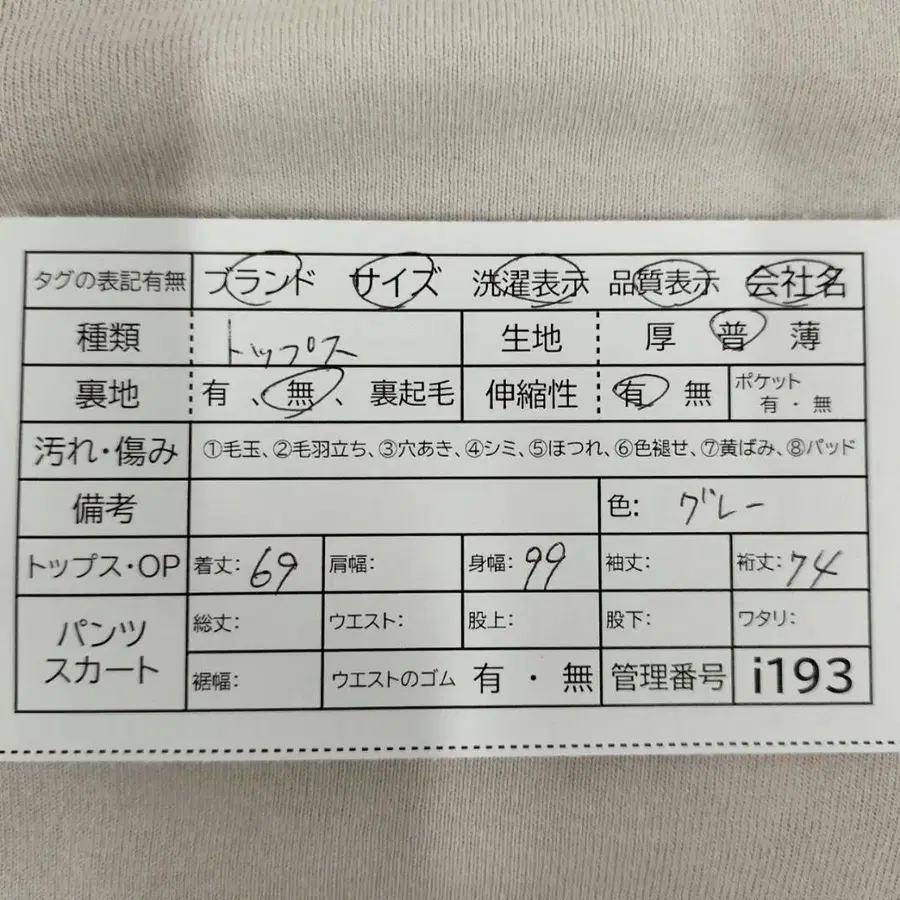 タグの表記有無 ブランド サイズ 洗濯表示 品質表示 会社名
種類 トップス 生地 厚 普 薄
裏地 有、無、裏起毛 伸縮性 有 無 ポケット 有・無
汚れ・傷み ①毛玉、②毛羽立ち、③穴あき、④シミ、⑤ほつれ、⑥色褪せ、⑦黄ばみ、⑧パッド
備考 色: グレー
トップス・OP 着丈: 69 肩幅: 身幅: 99 袖丈: 裄丈: 74
パンツ スカート 総丈: ウエスト: 股上: 股下: ワタリ:
裾幅: ウエストのゴム 有・無 管理番号 i193